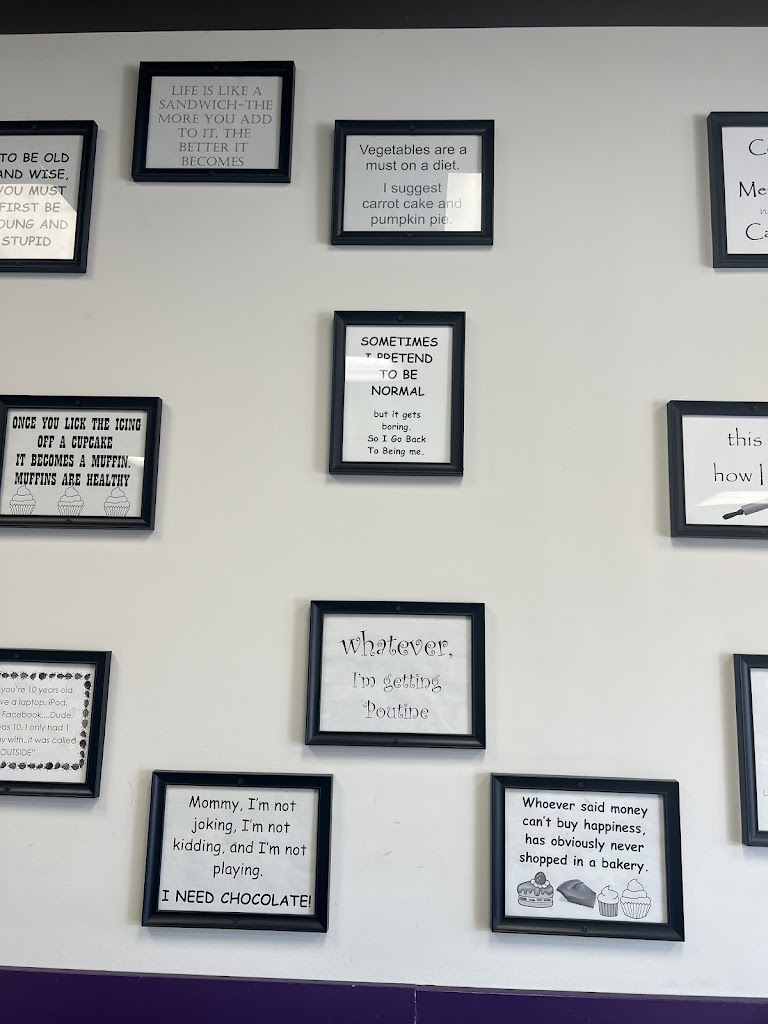 LIFE IS LIKE A
SANDWICH-THE
MORE YOU ADD
TO IT, THE
BETTER IT
BECOMES
TO BE OLD
AND WISE,
YOU MUST
FIRST BE
YOUNG AND
STUPID
Vegetables are a
must on a diet.
I suggest
carrot cake and
pumpkin pie.
SOMETIMES
I PRETEND
TO BE
NORMAL
but it gets
boring.
So I Go Back
To Being me.
ONCE YOU LICK THE ICING
OFF A CUPCAKE
IT BECOMES A MUFFIN.
MUFFINS ARE HEALTHY
this
how I
whatever,
I'm getting
Poutine
you're 10 years old,
ve a laptop, iPod,
Facebook....Dude,
was 10, I only had 1
y with..it was called
"OUTSIDE"
Mommy, I'm not
joking, I'm not
kidding, and I'm not
playing.
I NEED CHOCOLATE!
Whoever said money
can't buy happiness,
has obviously never
shopped in a bakery.